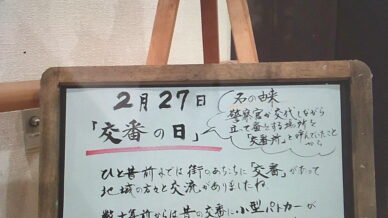 2月27日
「交番の日」
名の由来
警察官が交代しながら
立って番をする場所を
「交番所」と呼んでいたこと
から
ひと昔前までは街のあちらに「交番」があって
地域の方々と交流がありましたね
数十年前からは昔の交番に小型パトカーが